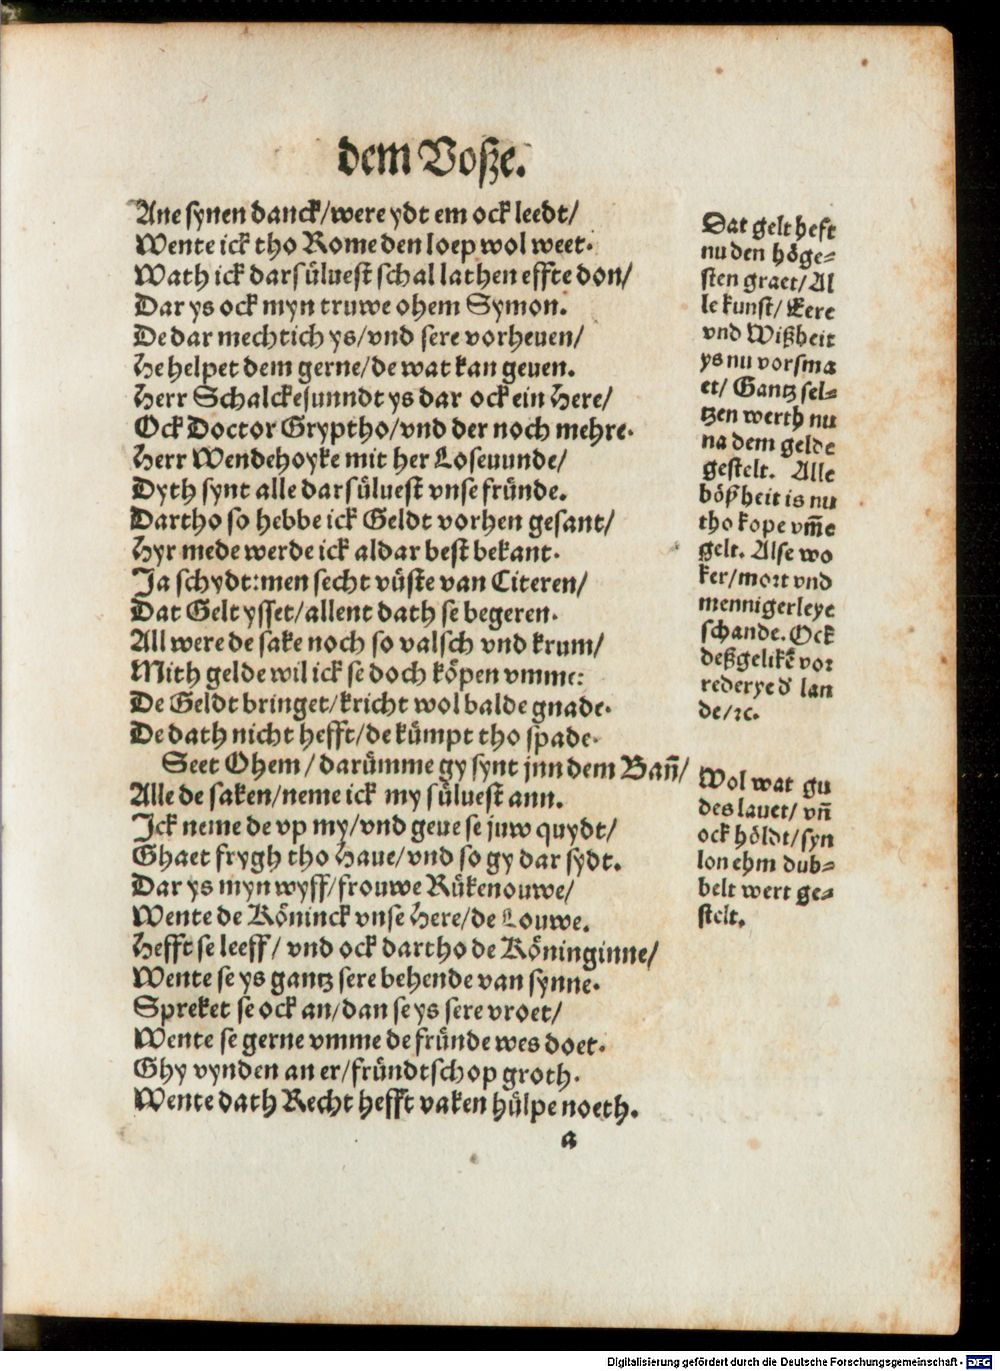 dem Voßze.
Ane synen danck/were ydt em ock leedt/
Wente ick tho Rome den loep wol weet.
Wath ick darsüluest schal lathen effte don/
Dar ys ock myn truwe ohem Symon.
De dar mechtich ys/vnd sere vorheuen/
He helpet dem gerne/de wat kan geuen.
Herr Schalckesunndt ys dar ock ein Here/
Ock Doctor Gryptho/vnd der noch mehre.
Herr Wendehoyke mit her Loseuunde/
Dyth synt alle darsüluest vnse fründe.
Dartho so hebbe ick Geldt vorhen gesant/
Hyr mede werde ick aldar best bekant.
Ja schydt:men secht vüste van Citeren/
Dat Gelt ysset/allent dath se begeren.
All were de sake noch so valsch vnd krum/
Mith gelde wil ick se doch köpen vmme:
De Geldt bringet/kricht wol balde gnade.
De dath nicht hefft/de kümpt tho spade.
Seet Ohem/darümme gy synt jnn dem Bañ/
Alle de saken/neme ick my süluest ann.
Ick neme de vp my/vnd geue se juw quydt/
Ghaet frygh tho Haue/vnd so gy dar sydt.
Dar ys myn wyff/frouwe Rükenouwe/
Wente de Köninck vnse Here/de Louwe.
Hefft se leeff/vnd ock dartho de Köninginne/
Wente se ys gantz sere behende van synne.
Spreket se ock an/dan se ys sere vroet/
Wente se gerne vmme de fründe wes doet.
Ghy vynden an er/fründtschop groth.
Wente dath Recht hefft vaken hülpe noeth.
a
Dat gelt heft
nu den höge=
sten graet/Al
le kunst/Eere
vnd Wißheit
ys nu vorsma
et/Gantz sel=
tzen werth nu
na dem gelde
gestelt. Alle
bößheit is nu
tho kope vm̃e
gelt. Alse wo
ker/mort vnd
mennigerleye
schande. Ock
deßgelikẽ vor
rederye d' lan
de/ꝛc.
Wol wat gu
des lauet/vñ
ock höldt/syn
lon ehm dub=
belt wert ge=
stelt.
Digitalisierung gefördert durch die Deutsche Forschungsgemeinschaft - DFG